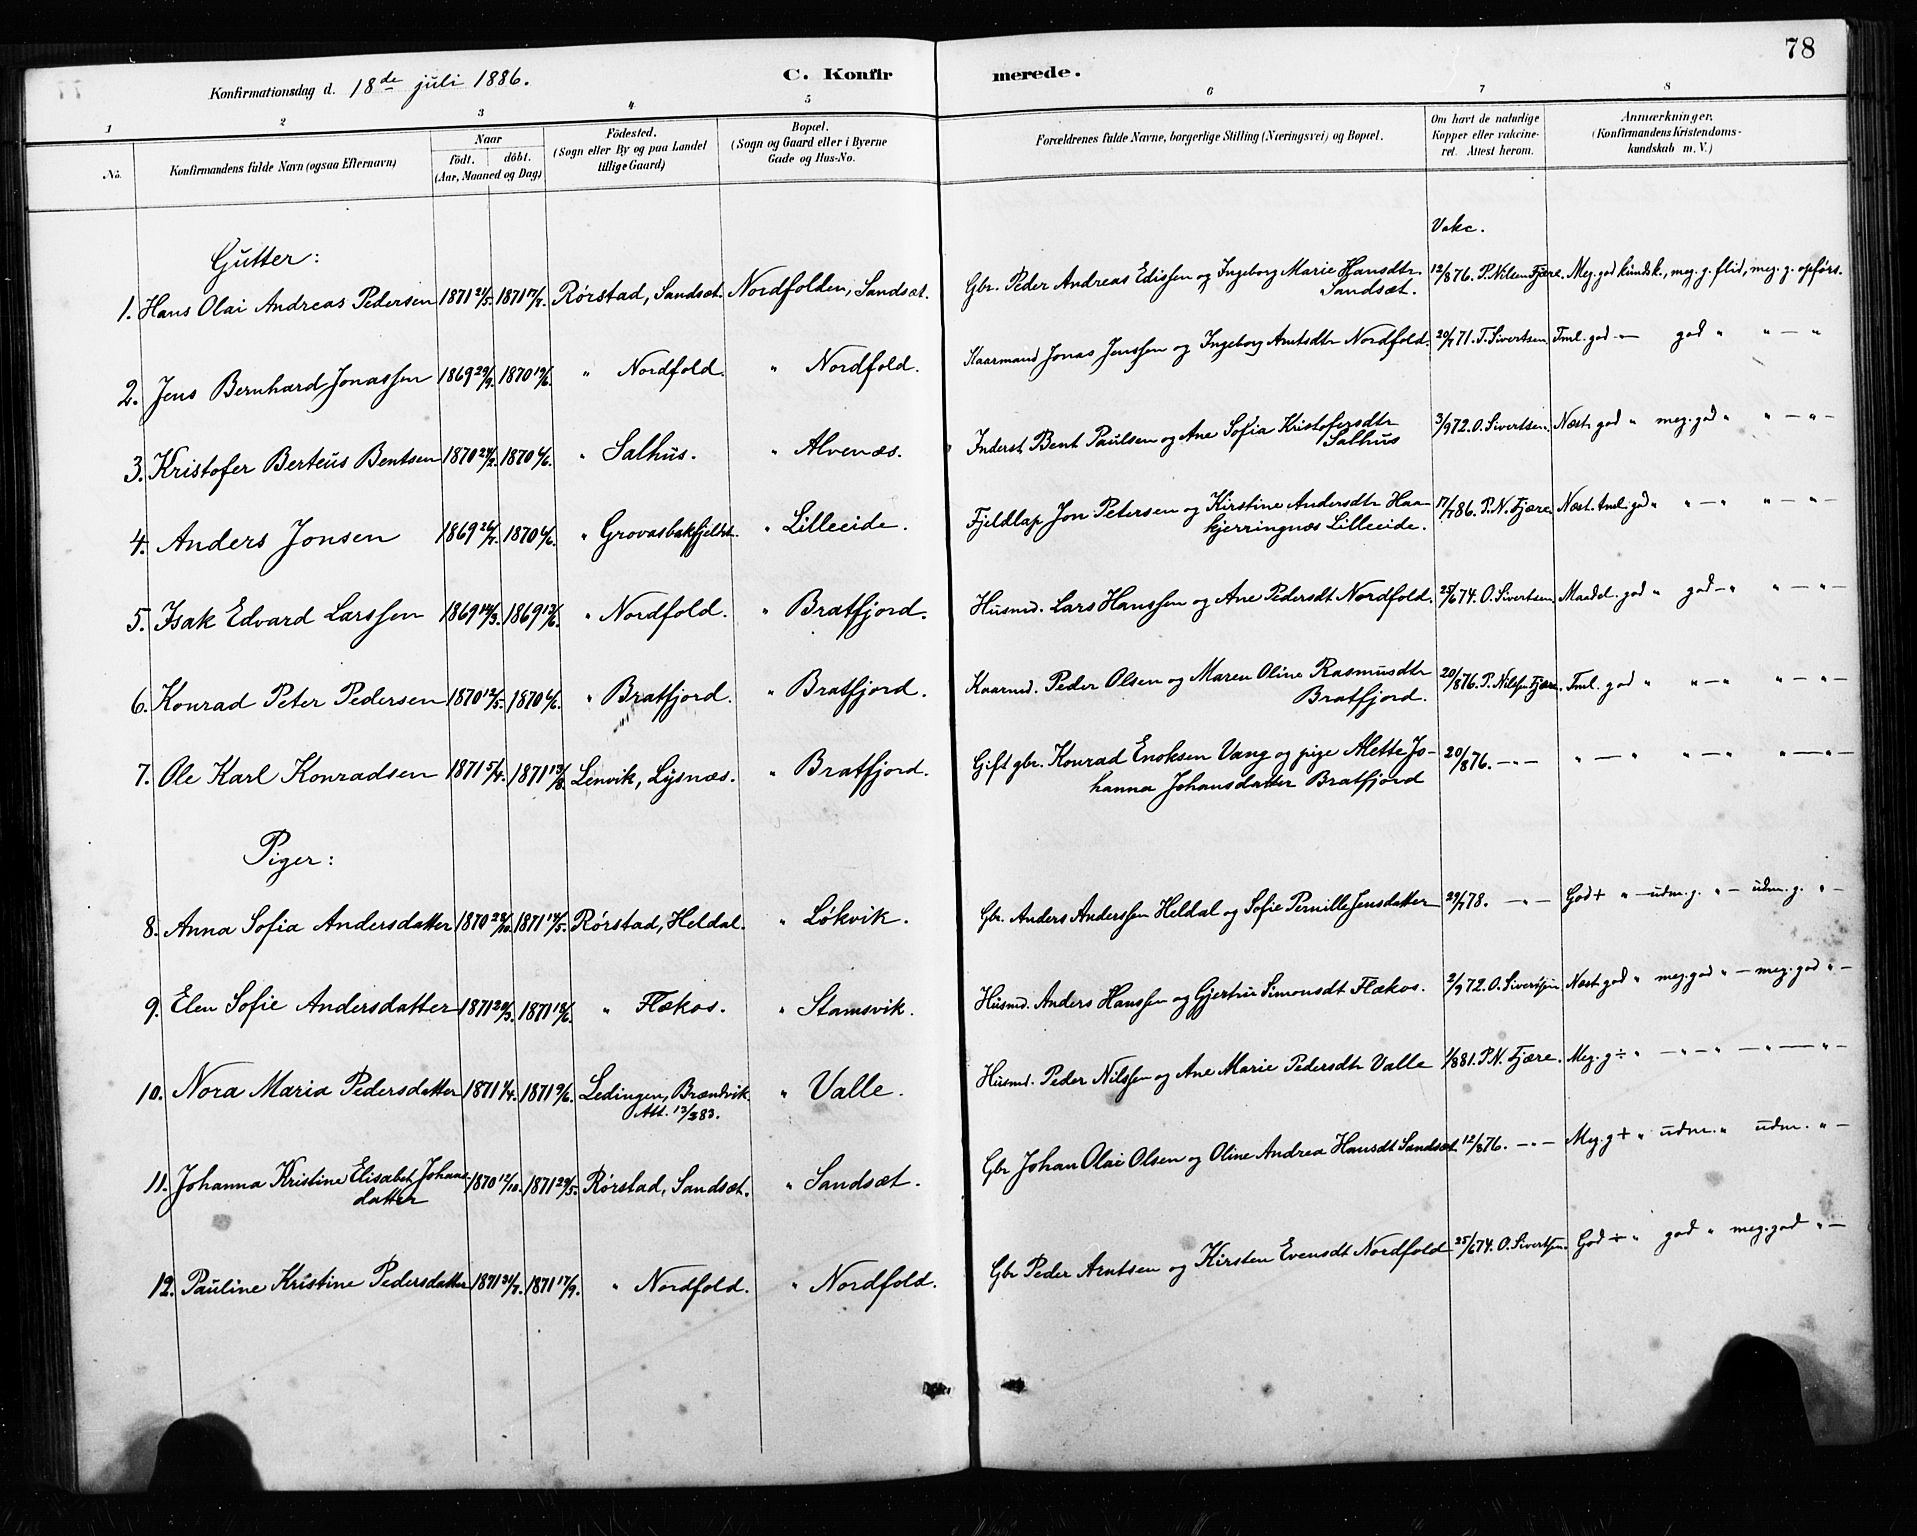 78
Konfirmationsdag d. 18de juli 1886.
C. Konfirmerede.
1 2 3 4 5 6 7 8
No.
Konfirmandens fulde Navn (ogsaa Efternavn)
Naar
födt. döbt.
(Aar, Maaned og Dag)
Födested.
(Sogn eller By og paa Landet
tillige Gaard)
Bopæl.
(Sogn og Gaard eller i Byerne
Gade og Hus-No.
Forældrenes fulde Navne, borgerlige Stilling (Næringsvei) og Bopæl.
Om havt de naturlige
Kopper eller vakcine-
ret. Attest herom.
Anmærkninger.
(Konfirmandens Kristendoms-
kundskab m. V.)
Vakc.
Gutter:
1. Hans Olai Andreas Pedersen 1871 21/5. 1871 17/7. Rørstad, Sandsæt. Nordfolden, Sandsæt. Gbr. Peder Andreas Edissen og Ingeborg Marie Hansdtr. 12/8 76. P. Nilsen Fjære. Meg. god kundsk., meg. g. flid, meg. g. opførs.
Sandsæt.
2. Jens Bernhard Jonassen 1869 29/9. 1870 19/6. " Nordfold. " Nordfold. Kaarmand Jonas Jenssen og Ingeborg Arntsdtr Nordfold. 20/7 71. T. Sivertsen. Tml. god — god " " — "
3. Kristofer Berteus Bentsen 1870 24/2. 1870 6/6. " Salhus. " Alvenæs. Inderst Bent Paulsen og Ane Sofia Kristofersdtr 3/9 72. O. Sivertsen. Næst. god " meg. god " " — " —
Salhus
4. Anders Jonsen 1869 26/7. 1870 6/6. " Grovasbakfjeldet. " Lilleeide. Fjeldlap Jon Petersen og Kirstine Andersdtr Haa- 17/7 86. P. N. Fjære. Næst. tml. gd " " — " " — " —
kjerringnæs Lilleeide.
5. Isak Edvard Larssen 1869 14/3. 1869 13/6. " Nordfold. " Bratfjord. Husmd. Lars Hanssen og Ane Pedersdt Nordfold. 25/6 74. O. Sivertsen. Maadel. god " god — " " — " —
6. Konrad Peter Pedersen 1870 12/5. 1870 6/6. " Bratfjord. " Bratfjord. Kaarmd. Peder Olsen og Maren Oline Rasmusdtr 20/8 76. P. Nilsen Fjære. Tml. god " " — " " — " —
Bratfjord.
7. Ole Karl Konradsen 1871 5/4. 1871 13/8. Lenvik, Lysnæs. " Bratfjord. Gift gbr. Konrad Enoksen Vang og pige Alette Jo- 20/8 76. — " — " — " " — " " — " —
hanna Johansdatter Bratfjord
Piger:
8. Anna Sofia Andersdatter 1870 28/10. 1871 14/5. Rørstad, Heldal. " Løkvik. Gbr. Anders Anderssen Heldal og Sofie Pernille Jensdatter 29/7 78. — " — God + " — udm. g. " — udm. g. " —
9. Elen Sofie Andersdatter 1871 28/3. 1871 18/6. " Flækos. " Stamsvik. Husmd. Anders Hanssen og Gjertru Simonsdt Flækos. 2/9 72. O. Sivertsen Næst god " meg. god " — meg. god " —
10. Nora Maria Pedersdatter 1871 1/4. 1871 9/6. Lødingen, Brændvik. " Valle. Husmd. Peder Nilssen og Ane Marie Pedersdtr Valle 1/8 81. P. N. Fjære. Meg. g ÷ " — " — " — " — " —
Att. 13/2 83.
11. Johanna Kristine Elisabet Johans- 1870 12/10. 1871 29/5. Rørstad, Sandsæt. " Sandsæt. Gbr Johan Olai Olsen og Oline Andrea Hansdt Sandsæt. 12/8 76. — " — Meg. g + " udm. " udm. " —
datter
12. Pauline Kristine Pedersdatter 1871 24/7. 1871 17/9. " Nordfold. " Nordfold. Gbr Peder Arntsen og Kirsten Evensdt Nordfold 25/6 74. O. Sivertsen. God ÷ " god " meg. god " —